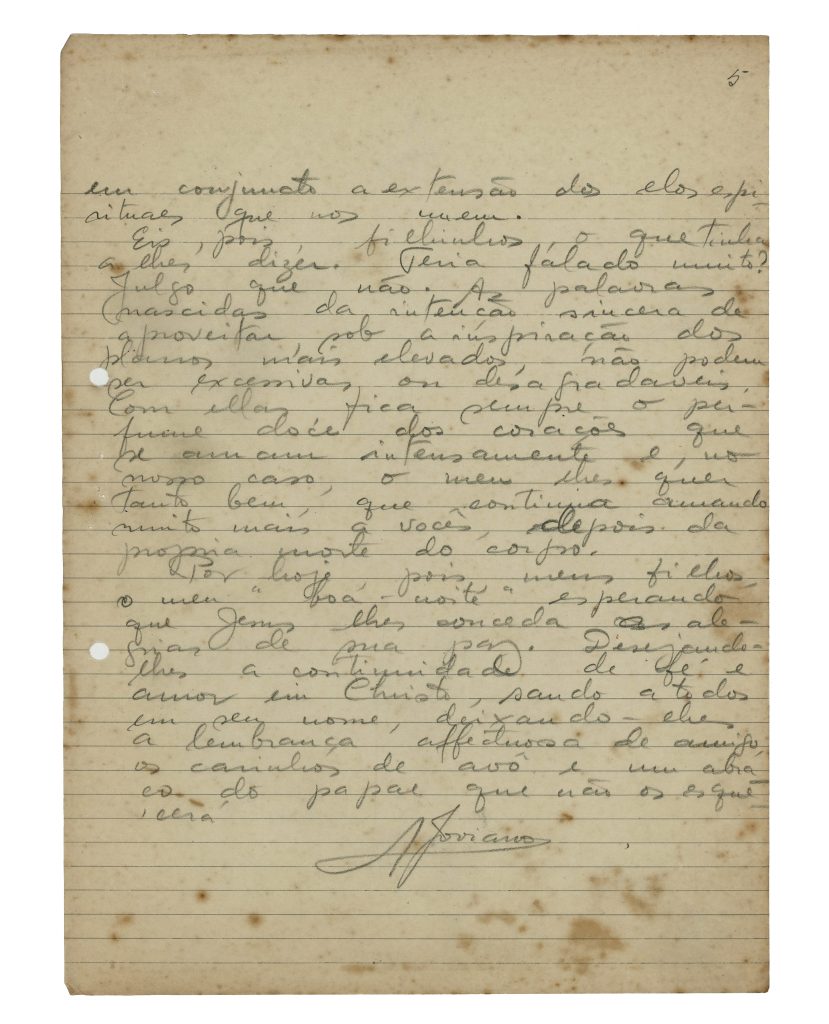 5
em conjuncto a extensão dos elos espi-
rituaes que nos unem.
Eis, pois, filhinhos, o que tinha
a lhes dizer. Teria falado muito?
Julgo que não. As palavras
nascidas da intenção sincera de
aproveitar, sob a inspiração dos
planos mais elevados, não podem
ser excessivas ou desagradaveis.
Com ellas fica sempre o per-
fume doce dos corações que
se amam intensamente e, no
nosso caso, o meu lhes quer
tanto bem, que continua amando
muito mais a vocês, depois da
propria morte do corpo.
Por hoje, pois, meus filhos,
o meu "boa-noite" esperando
que Jesus lhes conceda as ale-
grias de sua paz. Desejando-
lhes a continuidade de fé e
amor em Christo, saudo a todos
em seu nome, deixando-lhes
a lembrança affectuosa de amigo,
os carinhos de avô e um abra-
ço do papae que não os esque-
cerá
A Joviano